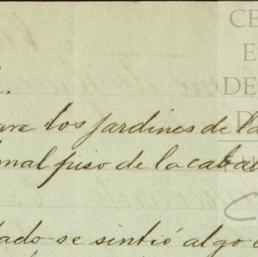 CE
E
DE
D
ara los jardines de la
mal piso de la cabal
C
tado se sintió algo